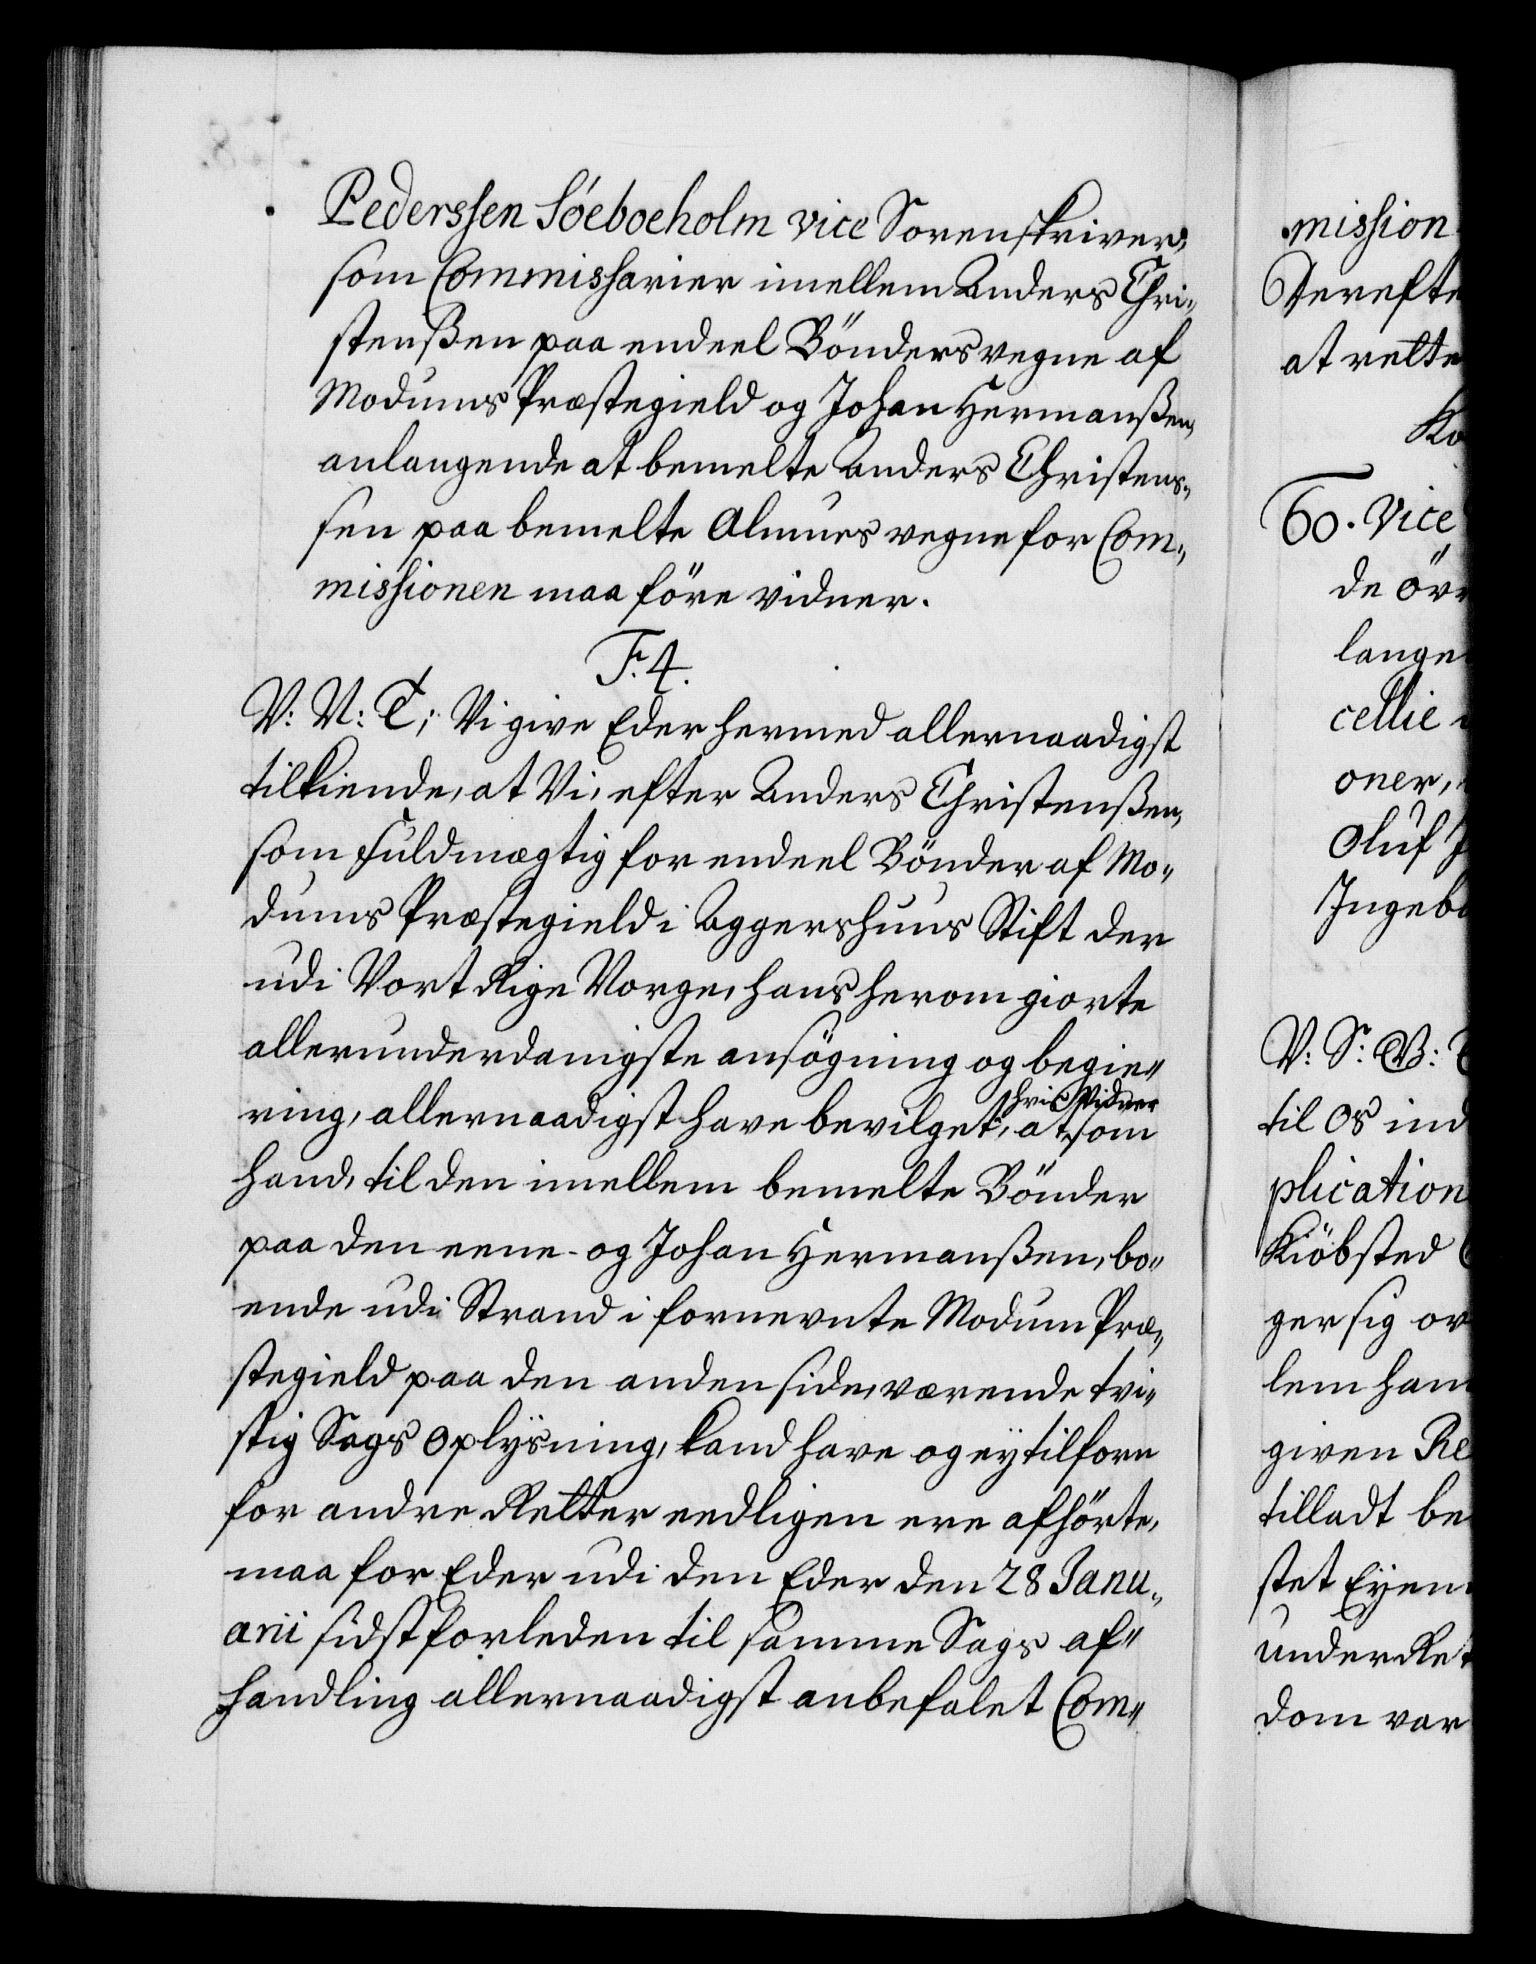 Pederssen Söeboeholm vice Sorenskriver,
som Commissarier imellem Anders Chri„
stenßen paa endeel Bönders vegne af
Modums Præstegield og Johan Hermanßen,
anlangende at bemelte Anders Christens„
sen paa bemelte Almues vegne for Com„
missionen maa före vidner.
F. 4.
V: U: T; Vi give Eder hermed allernaadigst
tilkiende, at Vi, efter Anders Christenßen,
som fuldmægtig for endeel Bönder af Mo„
dums Præstegield i Aggershuus Stift der
udi Vort Rige Norge, hans herom giorte
allerunderdanigste ansögning og begie„
hvis Vidner
ring, allernaadigst have bevilget, at som
hand, til den imellem bemelte Bönder
paa den eene- og Johan Hermanßen, bo„
ende udi Strand i fornevnte Modum Præ„
stegield paa den anden side, værende tvi„
stig Sags Oplysning, kand have og ey tilforn
for andre Retter eedligen ere afhörte,
maa for Eder udi den Eder den 28 Janu„
arii sidst forleden til samme Sags af„
handling allernaadigst anbefalet Com„
mission
Derefte
at rette
Ko
60. Vice
de övr
lange
cellie
oner,
Oluf J
Ingeb
V: S: B: T
til Os ind
plication
Kiöbsted
ger sig ov
lem ham
given Re
tilladt be
stet Eyen
underRet
dom var